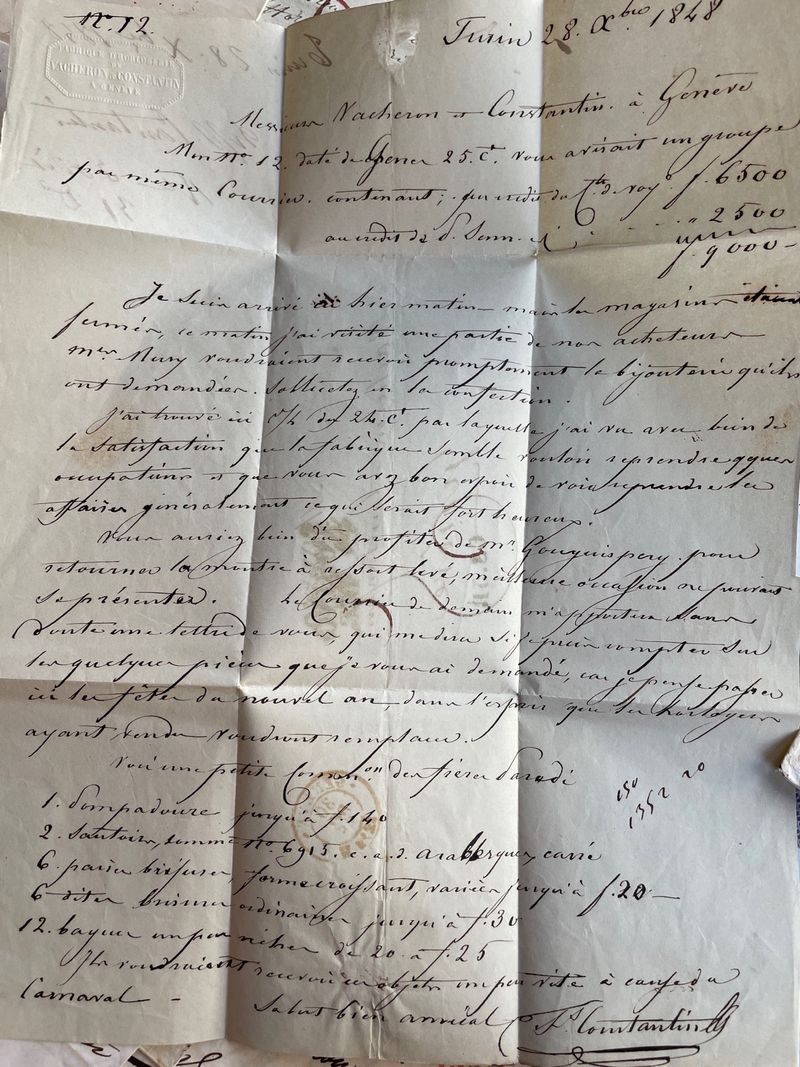 No. 12.
Turin 28. Xbre 1848
FABRIQUE D'HORLOGERIE
DE
VACHERON & CONSTANTIN
A GENÈVE
Messieurs Vacheron et Constantin. à Genève
Mon No. 12. daté de Gênes 25. ct. vous avisait un groupe
par même Courrier. contenant; au crédit du Cte. de voy. f. 6500
au crédit de " 2500
f. 9000-
Je suis arrivé ici hier matin mais les magasins étaient
fermés, ce matin j'ai visité une partie de nos acheteurs
Mrs Mury voudraient recevoir promptement la bijouterie qu'ils
ont demandée. Sollicitez en la confection.
J'ai trouvé ici du 24. ct. par laquelle j'ai vu avec bien de
la satisfaction que la fabrique semble vouloir reprendre
occupations et que vous avez bon espoir de voir reprendre les
affaires généralement ce qui serait fort heureux.
Vous auriez bien dû profiter de Mr. pour
retourner la montre à ressort levé, meilleure occasion ne pouvait
se présenter. Le Courrier de demain m'apportera sans
doute une lettre de vous, qui me dira si je puis compter sur
les quelques pièces que je vous ai demandé, car je pense passer
ici les fêtes du nouvel an, dans l'espoir que les horlogers
ayant vendu voudront remplacer.
Voici une petite Common des frères
150 20
1352
1. Pompadoure jusqu'à f. 140
2. Sautoirs, comme No. 6915. c.a.d. arabesques, carré
6. paires briseures, forme croissant, variées jusqu'à f. 20 —
6 dites briseures ordinaires jusqu'à f. 30
12. bagues un peu riches de 20 à f. 25
Ils voudraient recevoir ces objets un peu vite à cause du
Carnaval -
Salut bien amical
Fs. Constantin